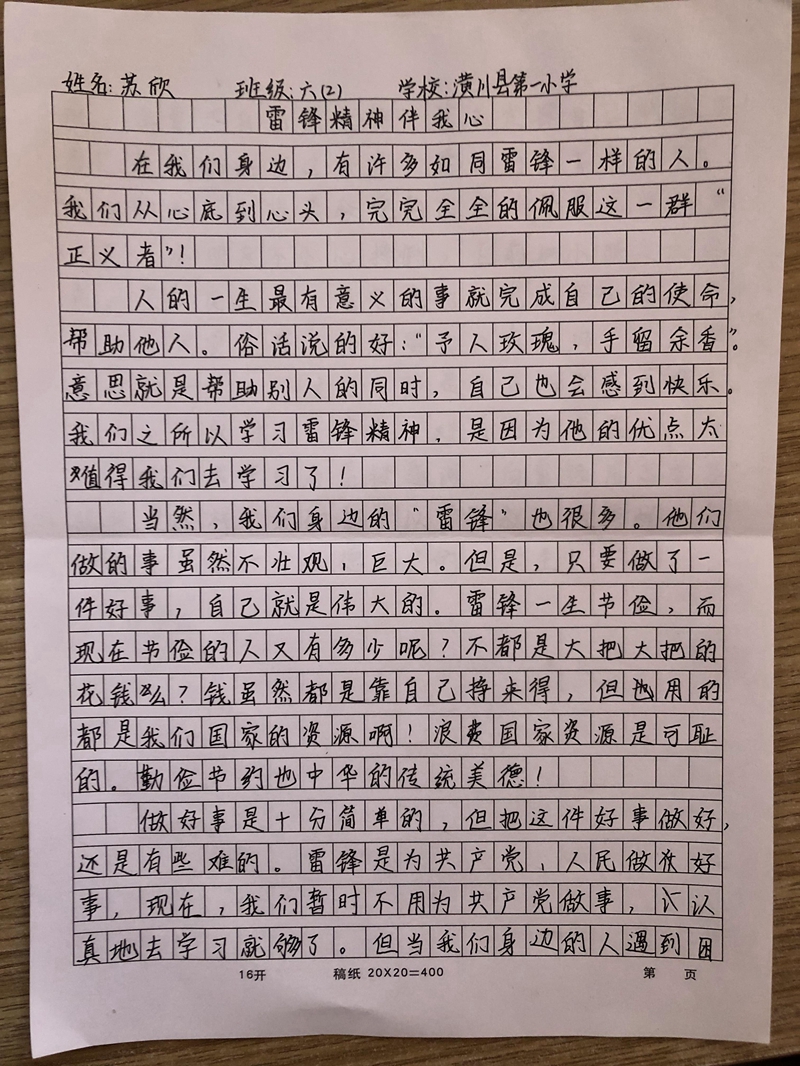 姓名:苏欣 班级:六(2) 学校:潢川县第一小学
雷锋精神伴我心
在我们身边，有许多如同雷锋一样的人。
我们从心底到心头，完完全全的佩服这一群“
正义者”！
人的一生最有意义的事就完成自己的使命，
帮助他人。俗话说的好：“予人玫瑰，手留余香”。
意思就是帮助别人的同时，自己也会感到快乐。
我们之所以学习雷锋精神，是因为他的优点太
值得我们去学习了！
当然，我们身边的“雷锋”也很多。他们
做的事虽然不壮观，巨大。但是，只要做了一
件好事，自己就是伟大的。雷锋一生节俭，而
现在节俭的人又有多少呢？不都是大把大把的
花钱么？钱虽然都是靠自己挣来得，但也用的
都是我们国家的资源啊！浪费国家资源是可耻
的。勤俭节约也中华的传统美德！
做好事是十分简单的，但把这件好事做好，
还是有些难的。雷锋是为共产党、人民做好
事，现在，我们暂时不用为共产党做事，认
真地去学习就够了。但当我们身边的人遇到困
16开 稿纸 20X20=400 第 页